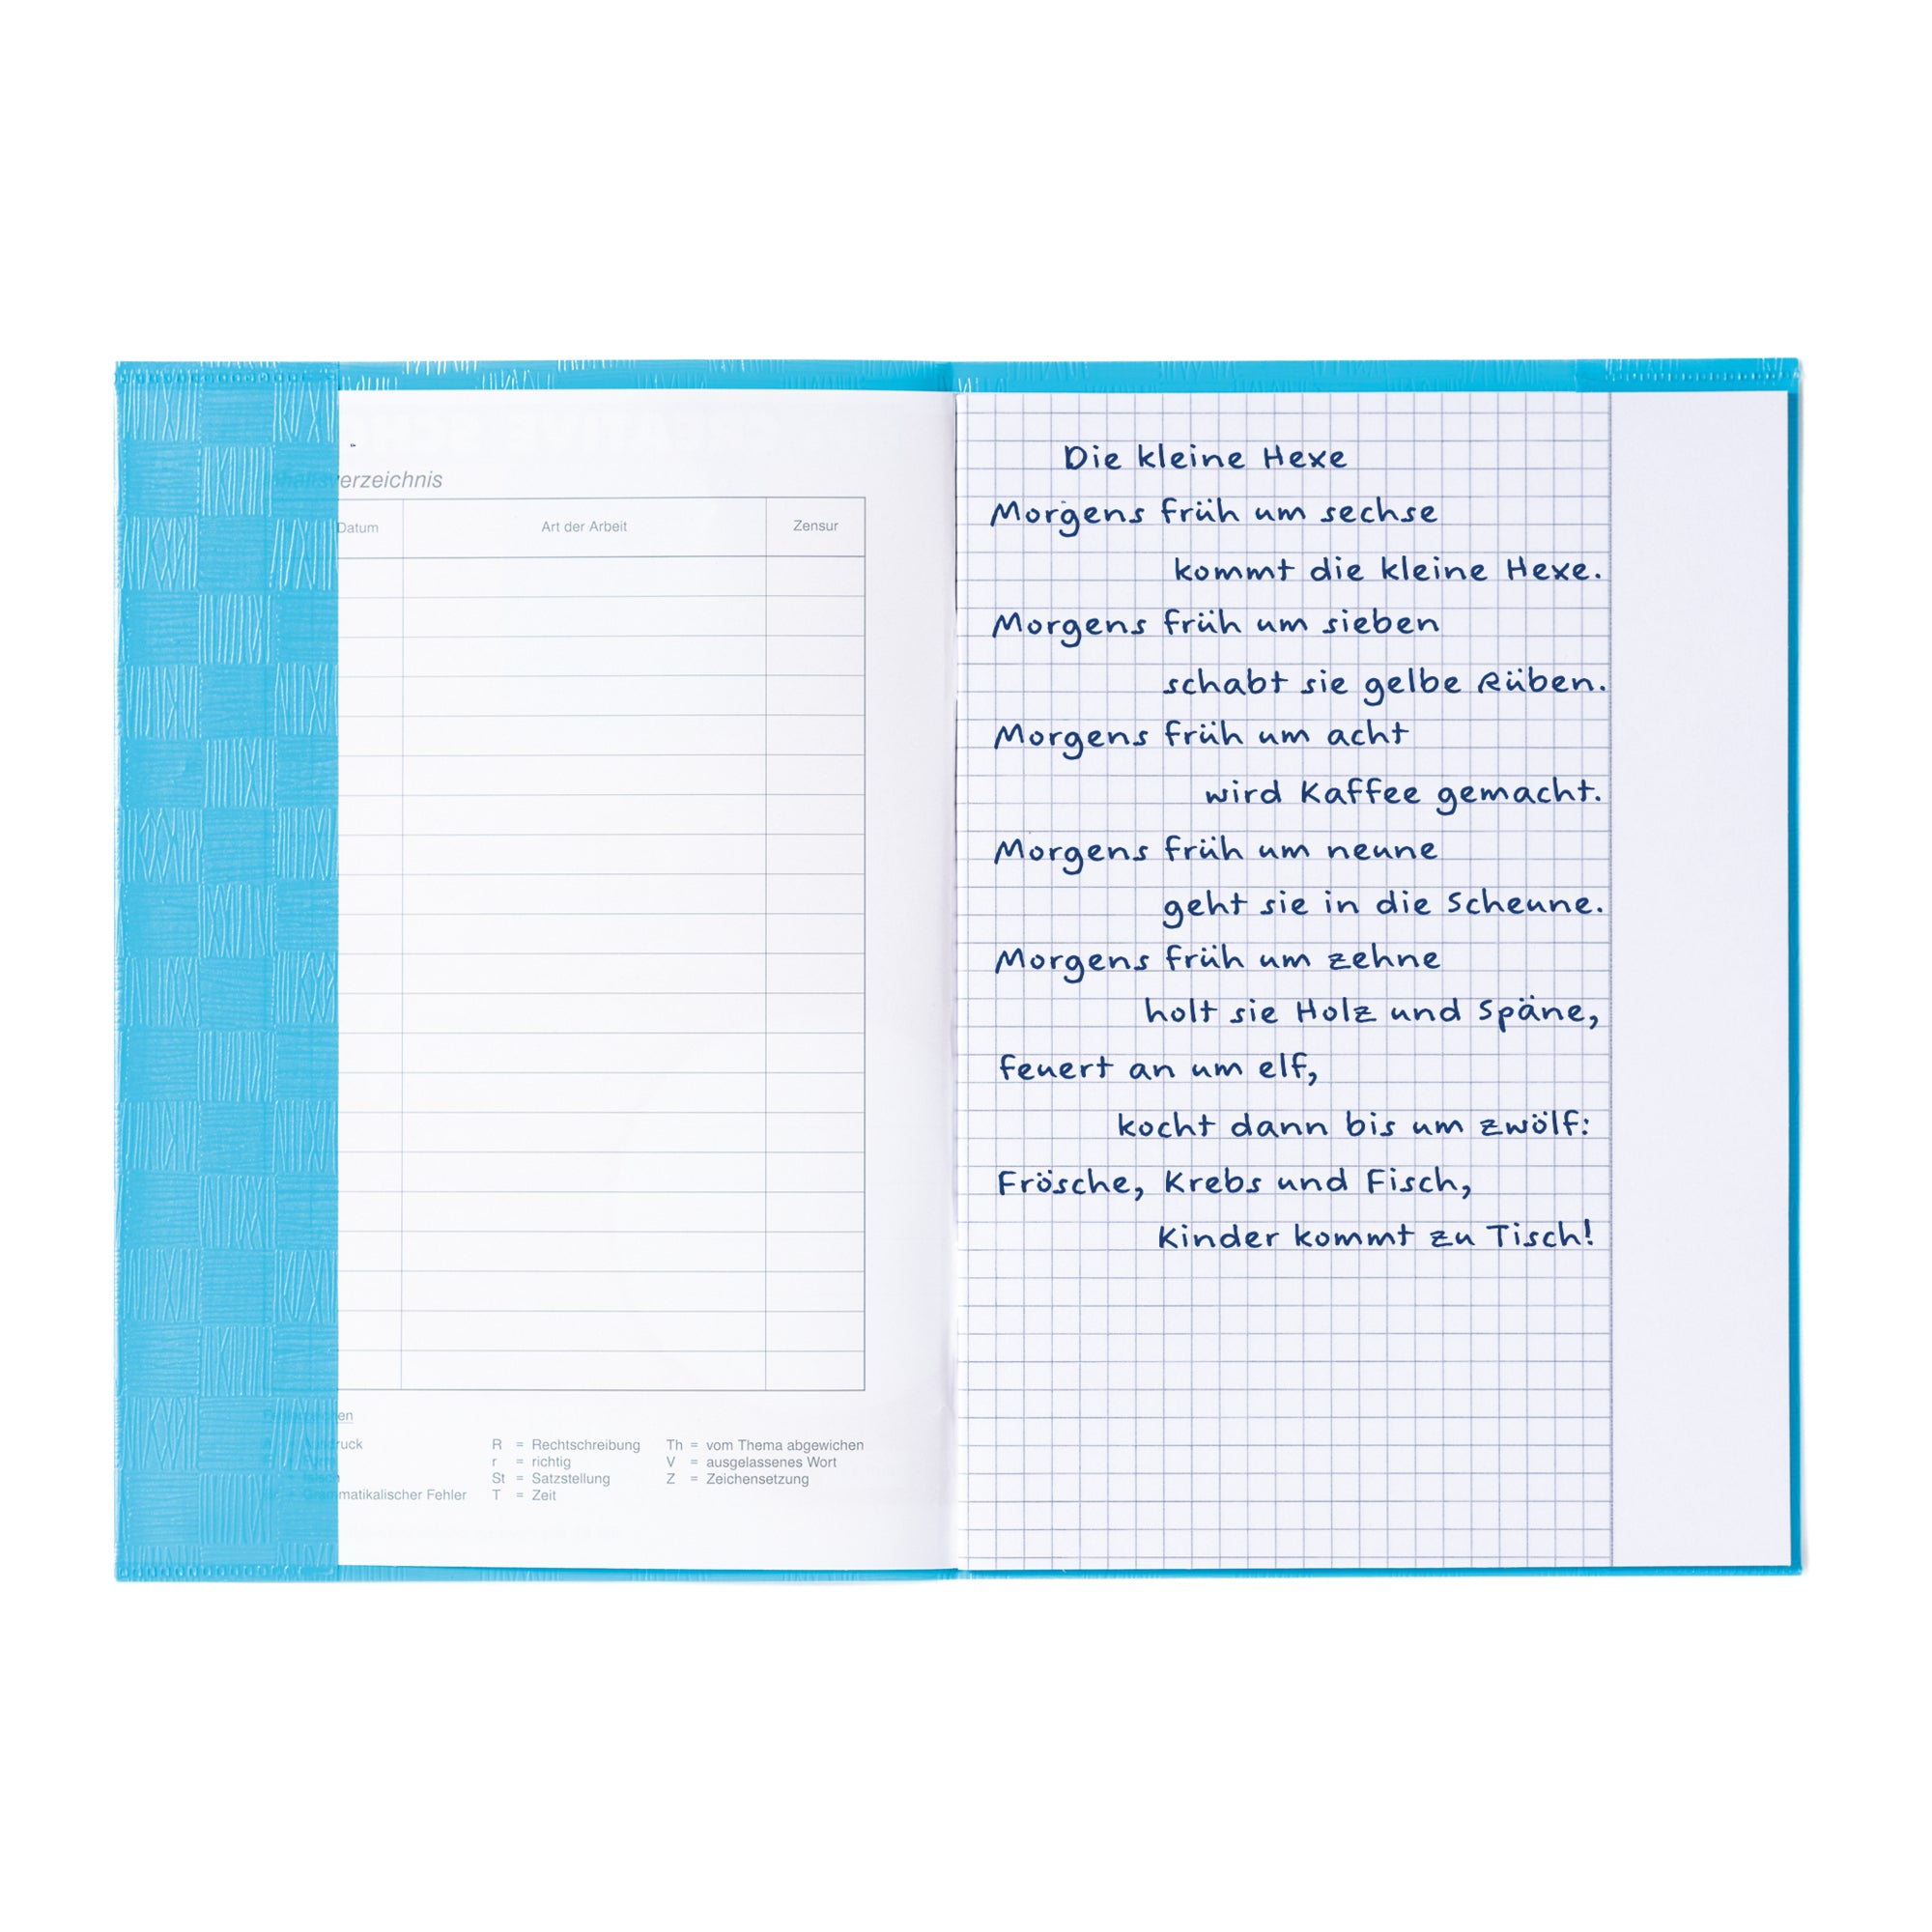 Inhaltsverzeichnis
Datum Art der Arbeit Zensur
R = Rechtschreibung Th = vom Thema abgewichen
r = richtig V = ausgelassenes Wort
St = Satzstellung Z = Zeichensetzung
Grammatikalischer Fehler T = Zeit
Die kleine Hexe
Morgens früh um sechse
kommt die kleine Hexe.
Morgens früh um sieben
schabt sie gelbe Rüben.
Morgens früh um acht
wird Kaffee gemacht.
Morgens früh um neune
geht sie in die Scheune.
Morgens früh um zehne
holt sie Holz und Späne,
feuert an um elf,
kocht dann bis um zwölf:
Frösche, Krebs und Fisch,
Kinder kommt zu Tisch!